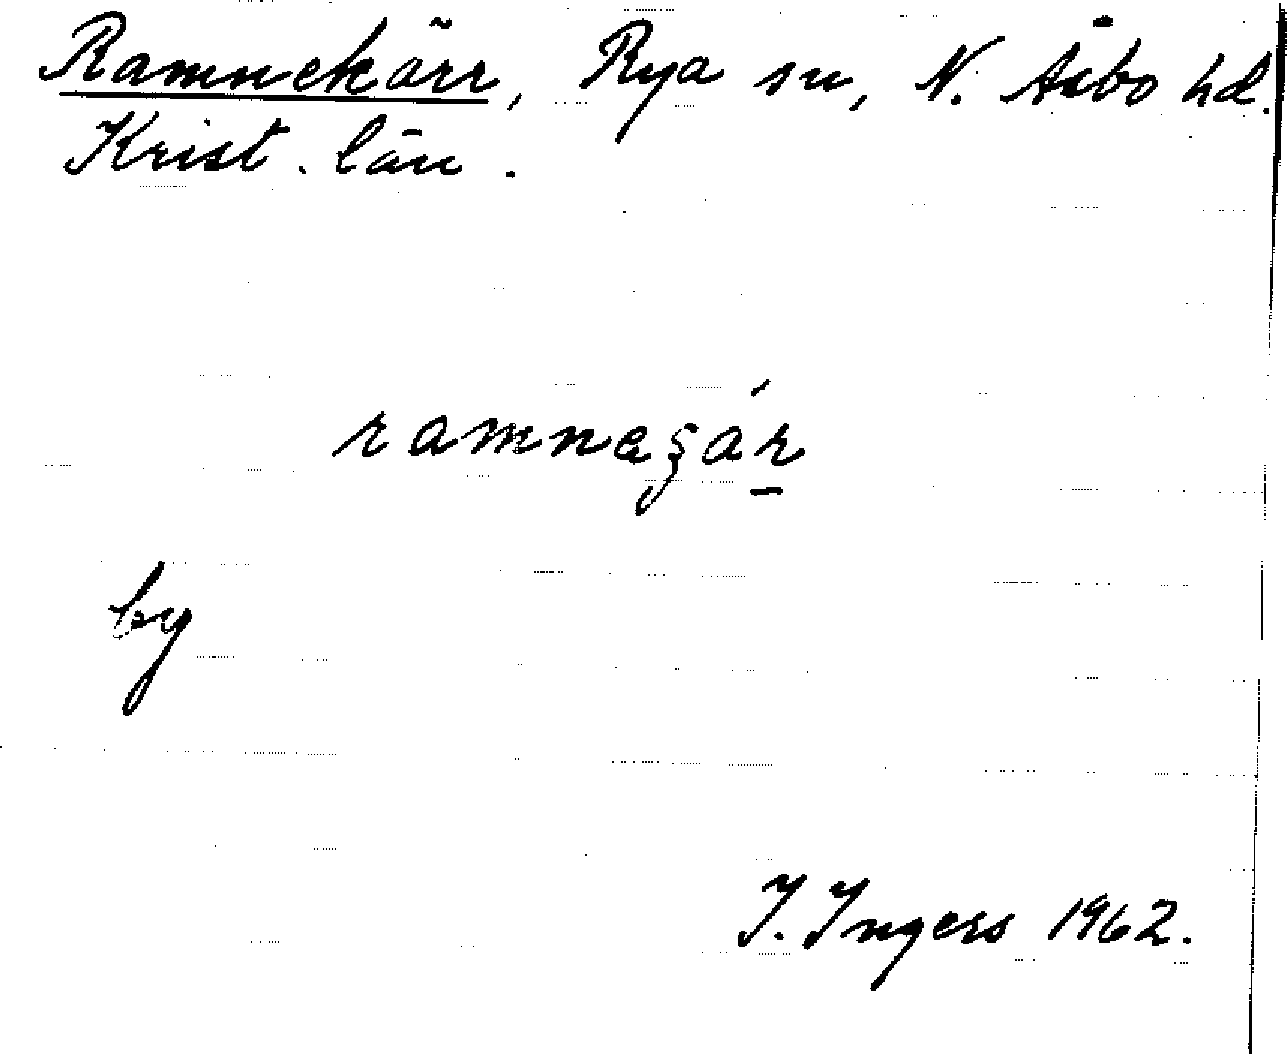 Ramnekärr, Rya sn, N. Åsbo hd.
Krist. län.
by
I. Ingers 1962.